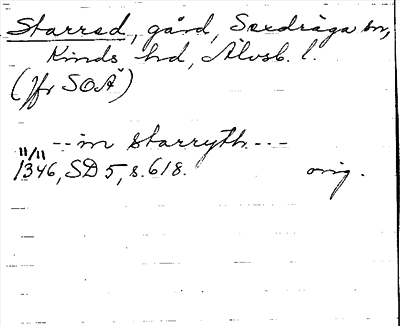 Starred, gård, Sexdräga sn,
Kinds hd, Älvsb. l.
(jfr SOÄ)
-- in starryth ---
11/11
1346, SD 5, s. 618. orig.